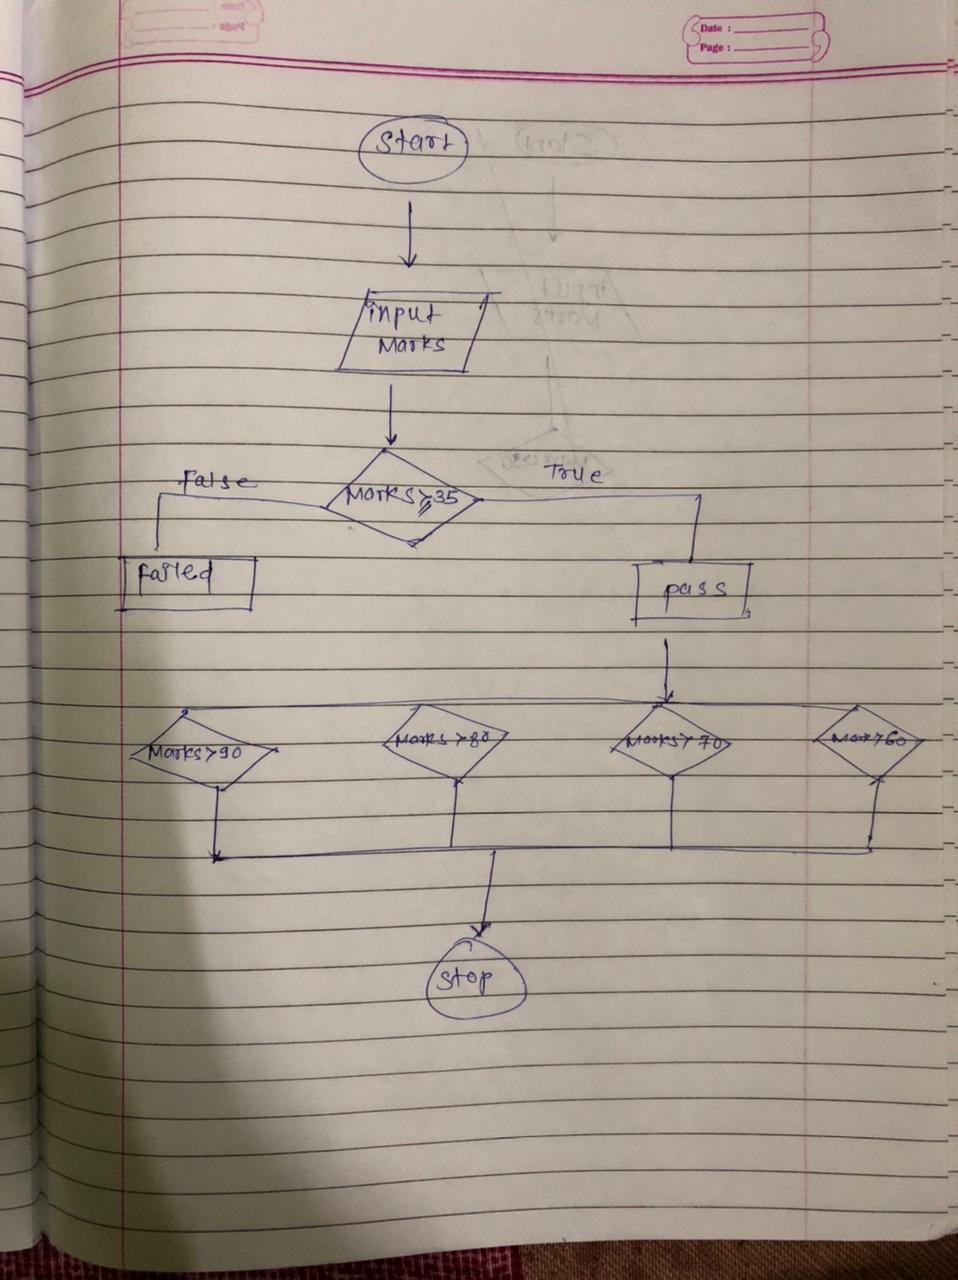 Date :
Page :
Start
input
Marks
False
Marks ≥ 35
True
Failed
pass
Marks > 90
Marks > 80
Marks > 70
Mar > 60
Stop